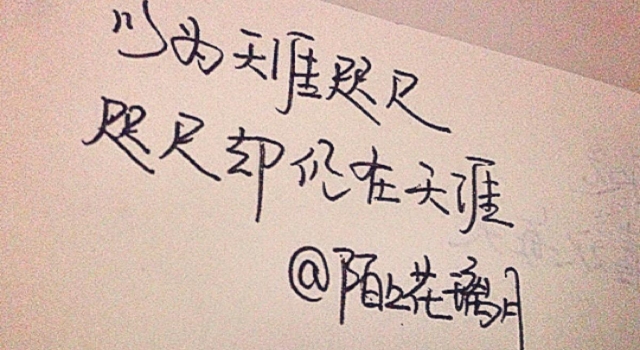 以为天涯咫尺
咫尺却仍在天涯
@陌上花璃月